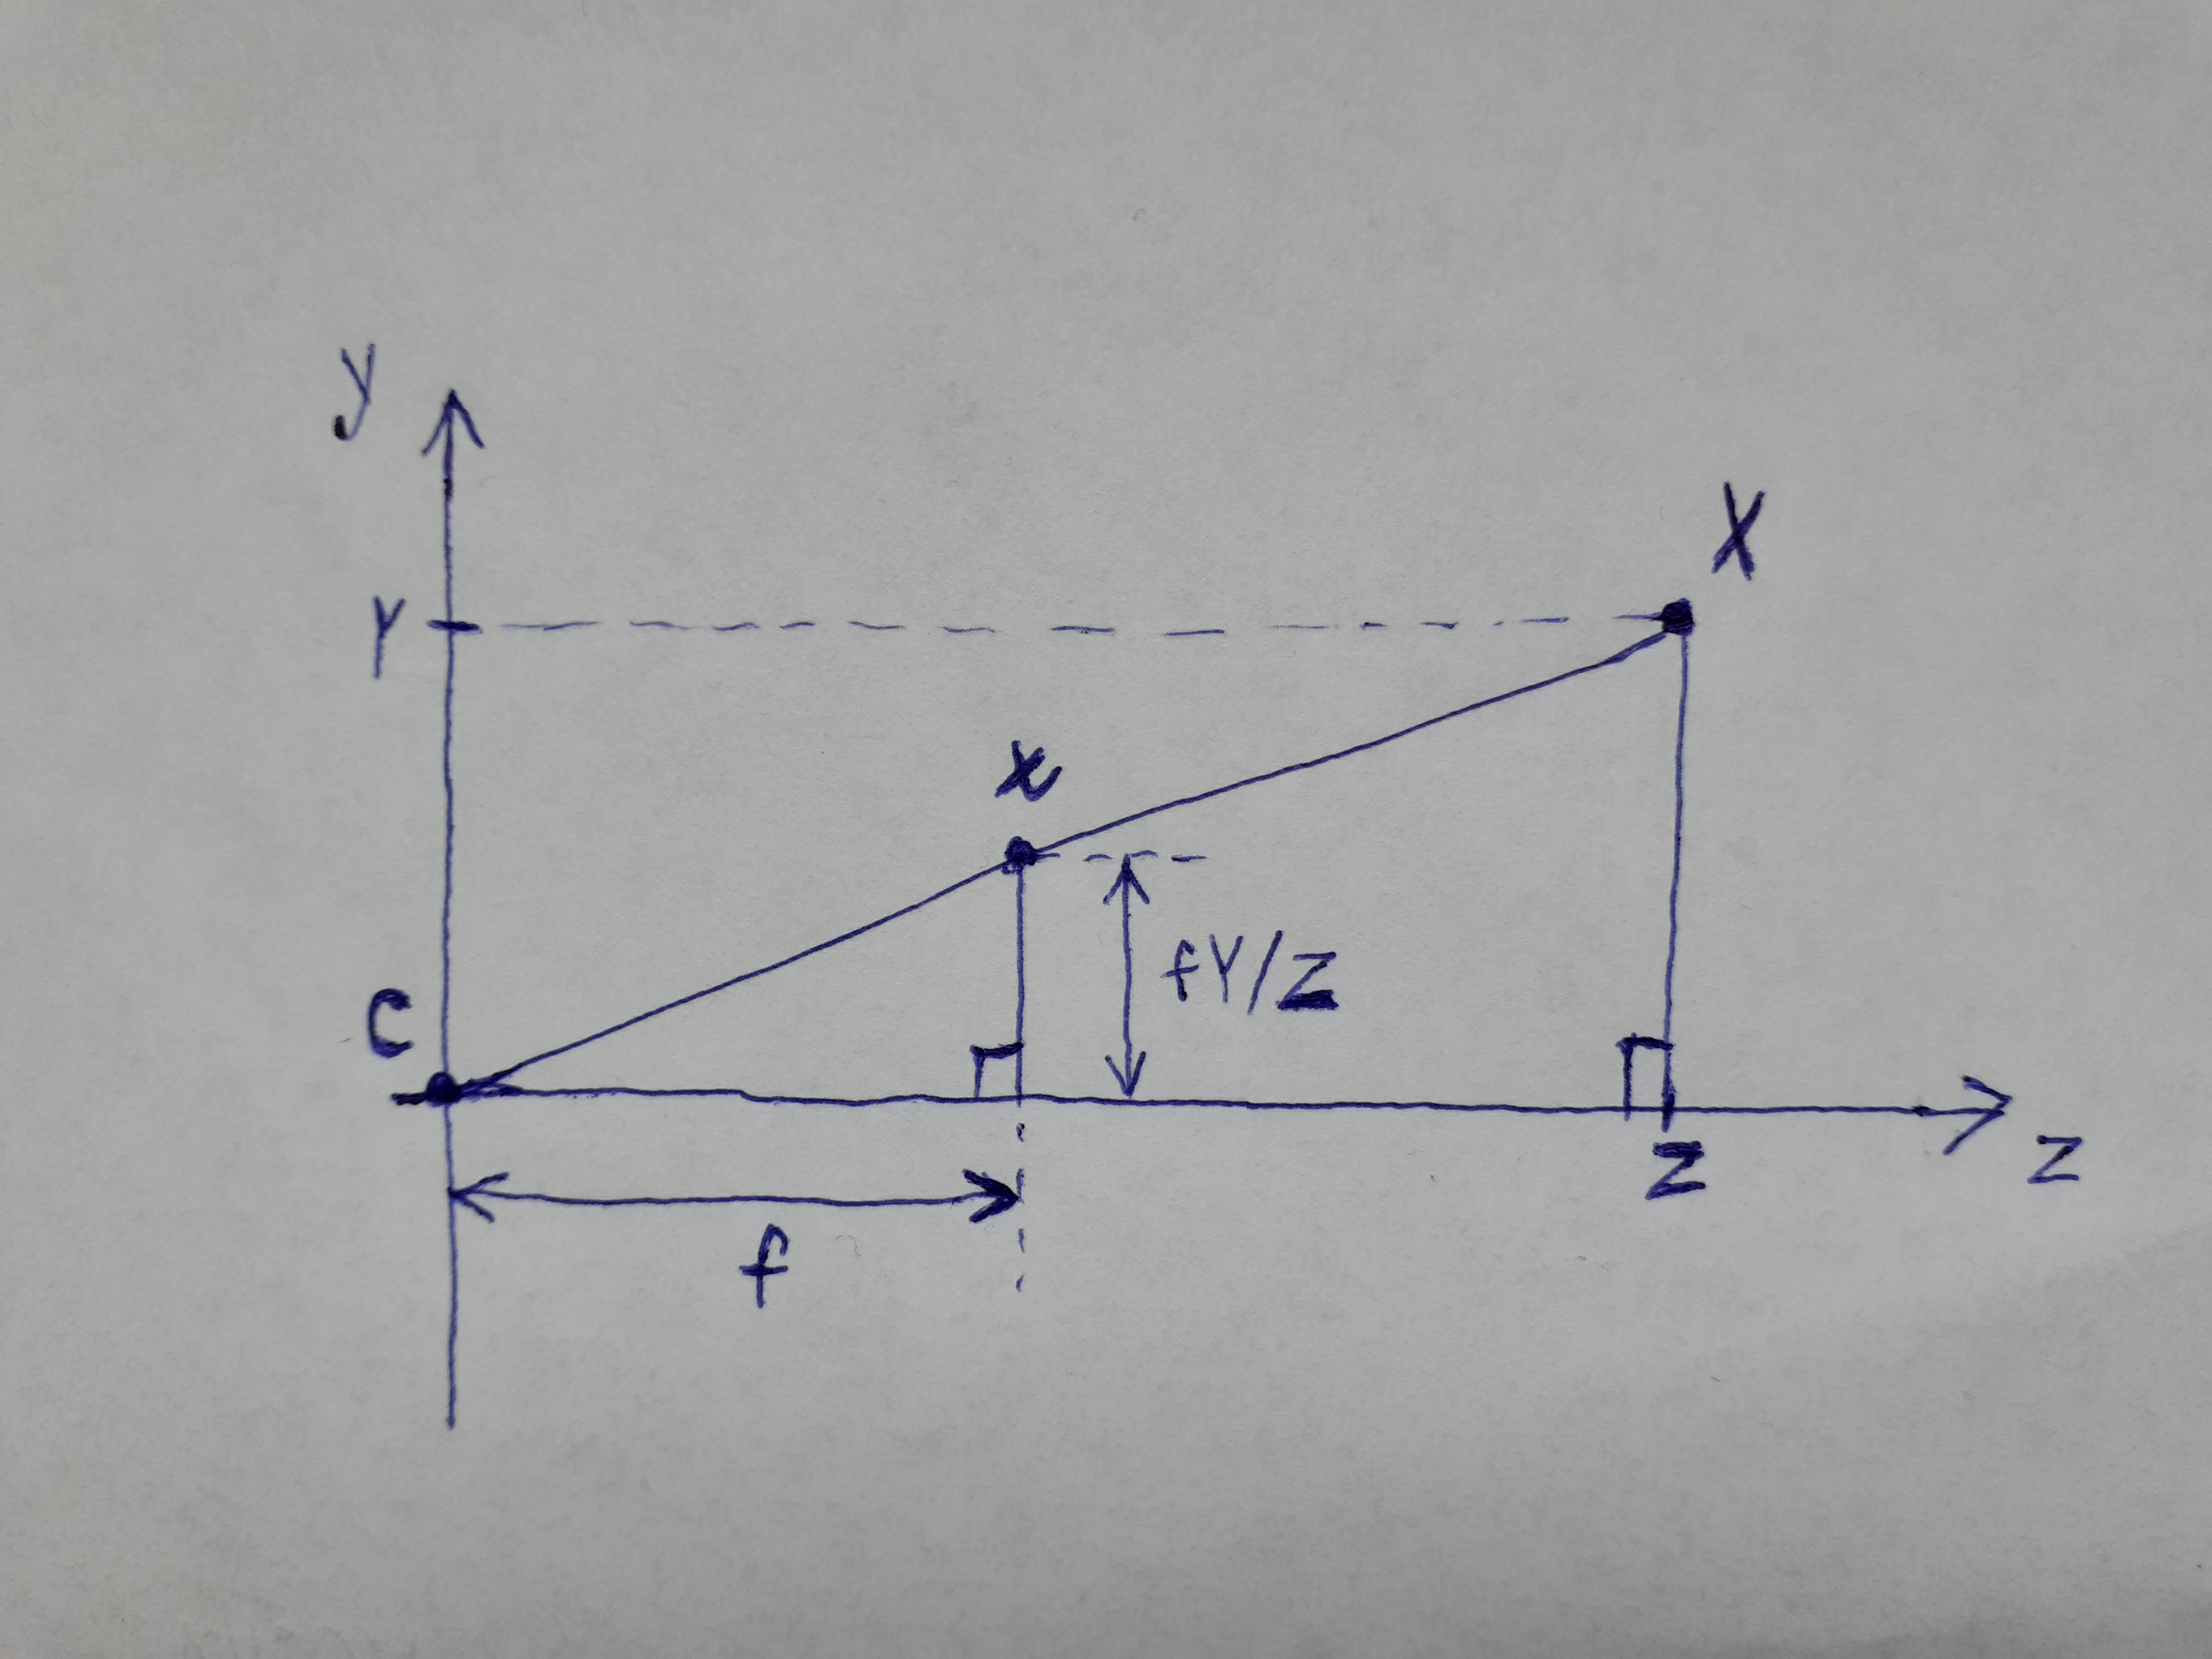 y
X
Y
x
fY/Z
C
Z
z
f